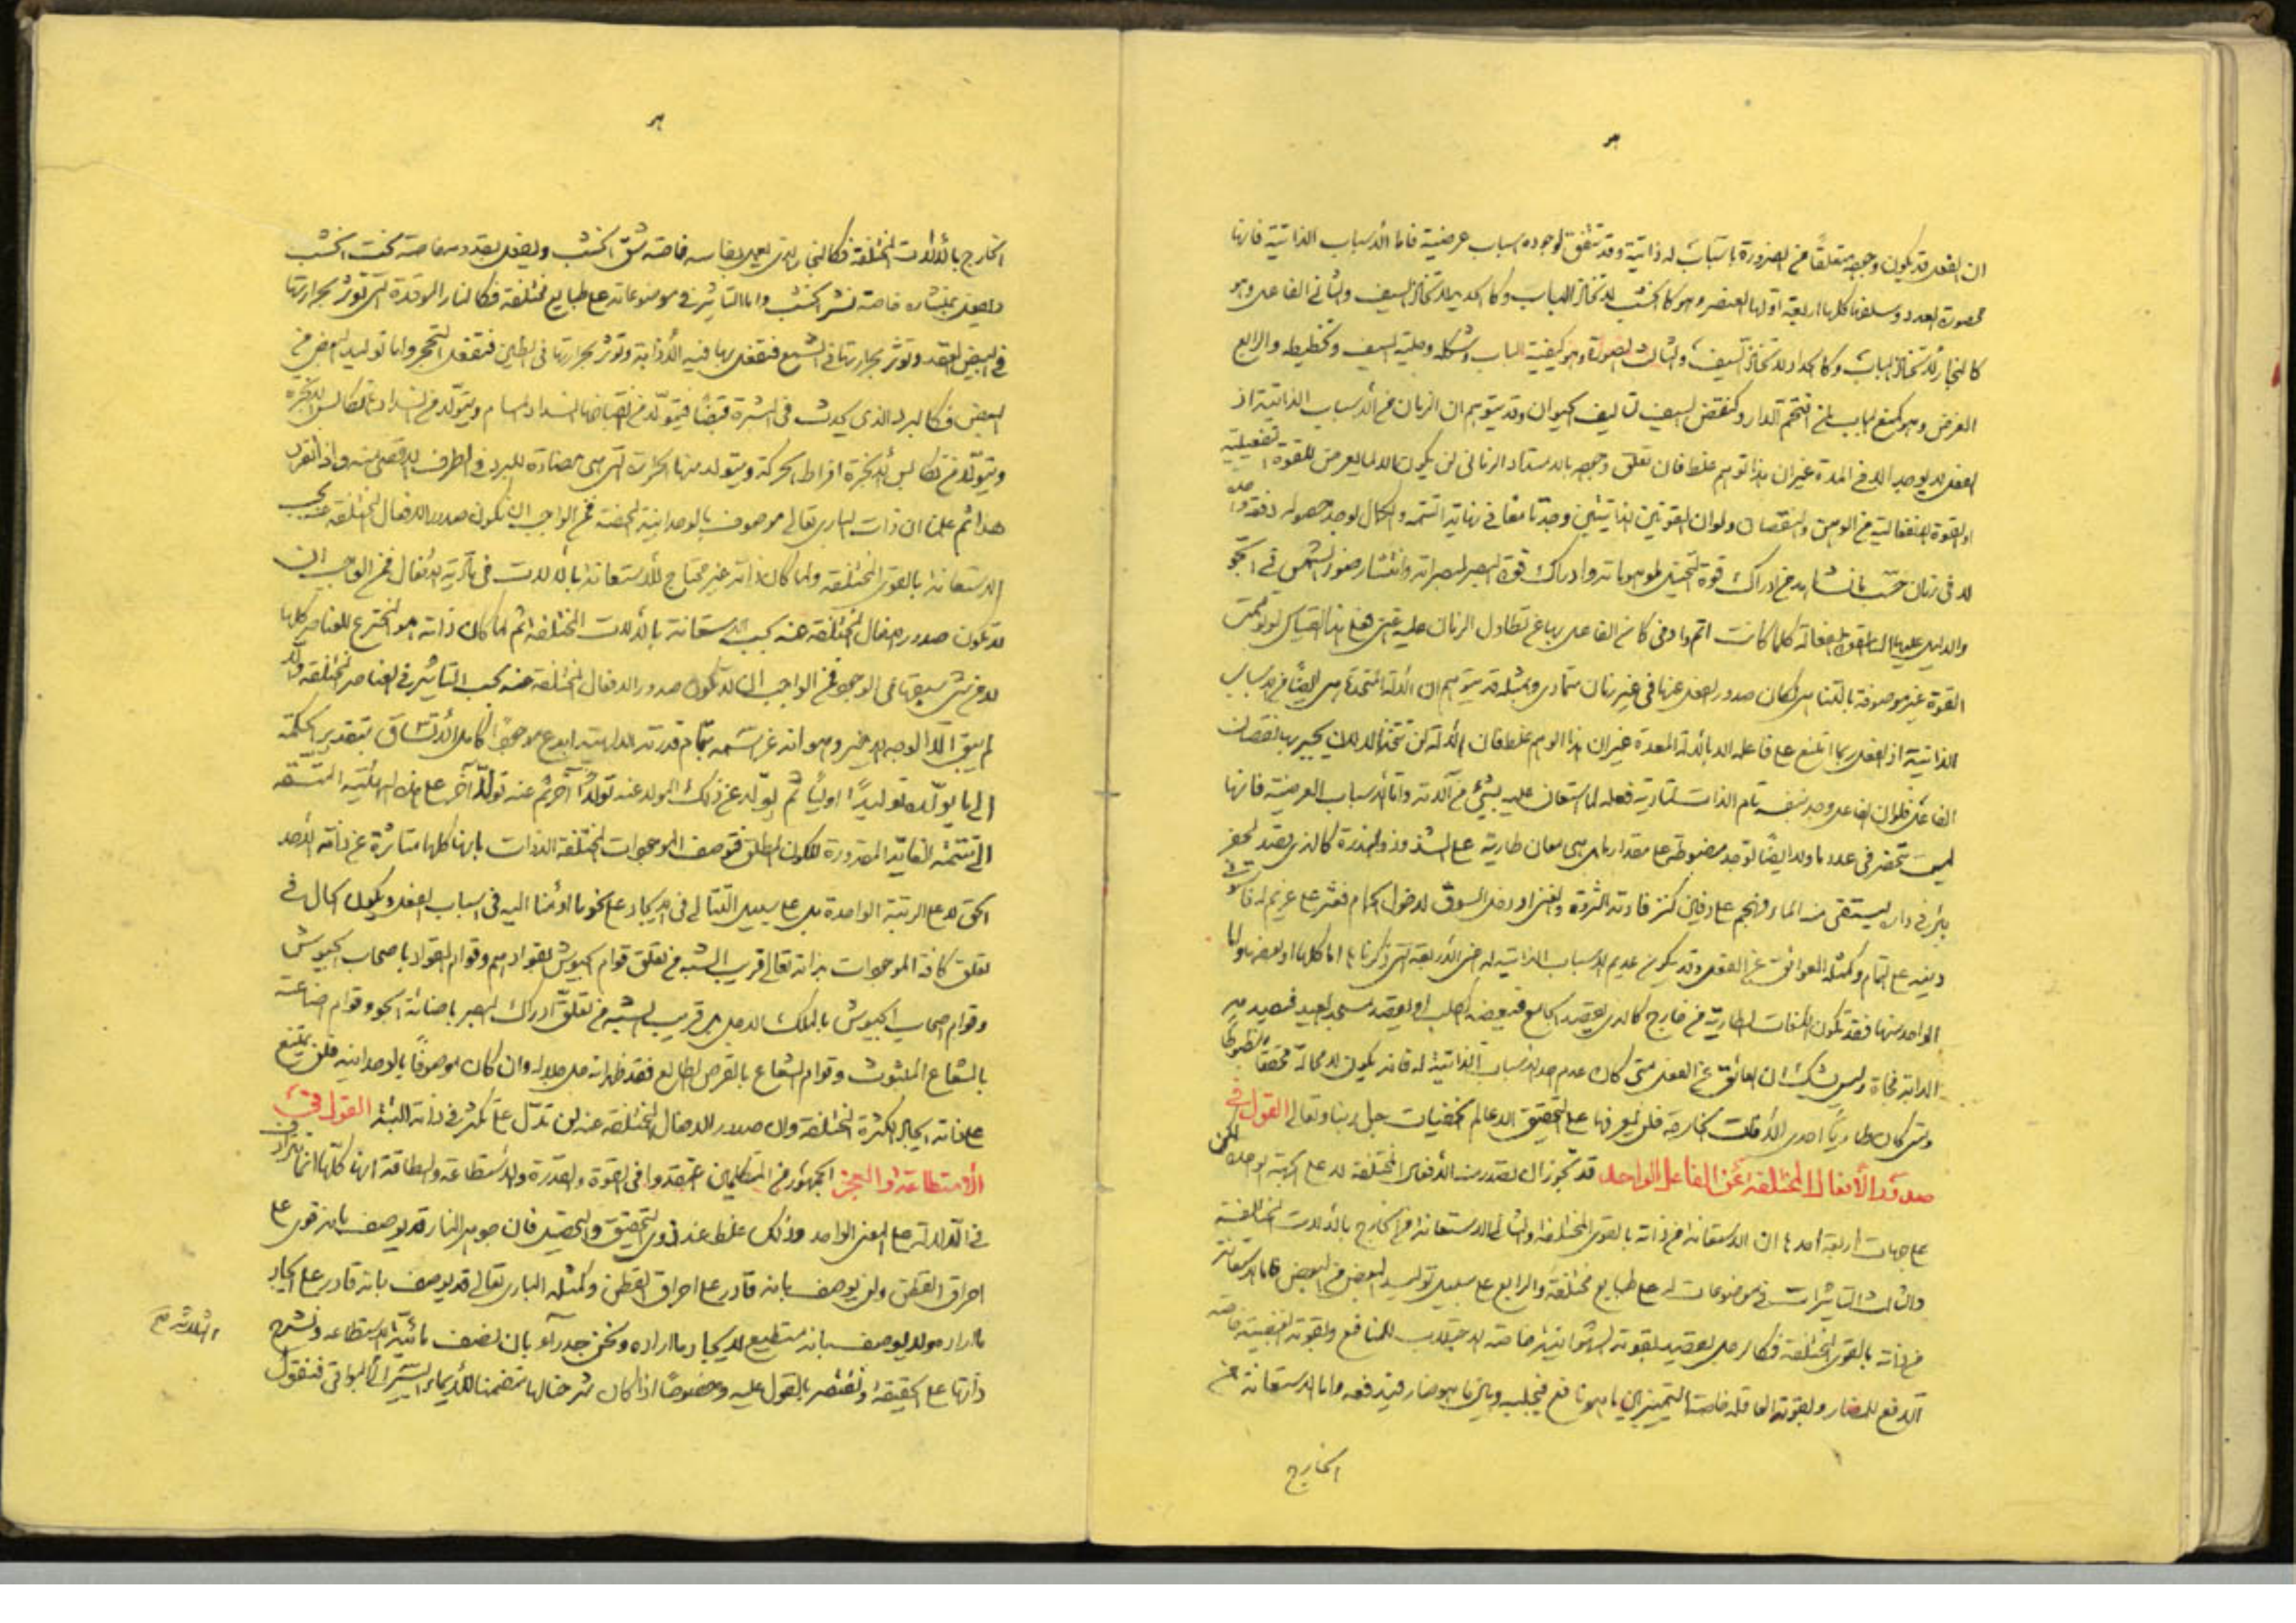 ان الفعل قد يكون وجوده متعلقًا من الضرورة باسباب له ذاتية وقد تتفق لوجوده اسباب عرضية فاما الأسباب الذاتية فانها
محصورة العدد وسلفها كلها اربعة اولها العنصر وهو كالخشب لاتخاذ الباب وكالحديد لاتخاذ السيف والثاني الفاعل وهو
كالنجار لاتخاذ الباب وكالحداد لاتخاذ السيف والثالث الصورة وهو كيفية الباب وشكله وحلية السيف وتخطيطه والرابع
الغرض وهو كمنع الباب لمن اقتحم الدار وكنقض السيف تاليف الحيوان وقد يتوهم ان الزمان من الأسباب الذاتية اذ
الفعل لا يوجد الا في المدة غير ان هذا توهم غلط فان تعلق وجوده بالامتداد الزماني لن يكون الا لما يعرض للقوة تفعيلية
او القوة الانفعالية من الوهن والنقصان ولو ان القوتين الذاتيتين وجدتا معًا في نهاية التتمه والكمال لوجد حصوله دفعة واحدة
لا في زمان حسب ما نشاهد من ادراك قوة التخيل لموهوماته وادراك قوة البصر لمبصراته وانتشار ضوء الشمس في الجو
والدليل عليه ان القوة الفعالة كلما كانت اتم واوفى كان الفاعل بها عن تطاول الزمان عليه اغنى فعلى هذا القياس لو توهمت
القوة غير موصوفة بالتناهي لكان صدور الفعل عنها في غير زمان متمادي وبمثله قد يتوهم ان الألة المتخذة هي ايضًا من الاسباب
الذاتية اذ الفعل ربما امتنع على فاعله الا بالألة المعدة غير ان هذا الوهم غلط فان الألة لن تتخذ الا لان يجبر بها نقصان
الفاعل فلو ان الفاعل وجد بنفسه تام الذات لتادية فعله لما استعان عليه بشئ من آلاته واما الأسباب العرضية فانها
ليست تنحصر في عدد ما ولا ايضًا توجد مضبوطة على مقدار بل هي معان طارية على الشذوذ والندرة كالذي يقصد لحفر
بئر في داره ليستقى منه الماء فيهجم على دفين كنز فادته الثروة والغنى او دخل السوق لدخول الحمام فعثر على غريم له
دينه على التمام وكمثله العوائق عن الفعل وقد يكون عديم الاسباب الذاتية له اعني الأربعة التي ذكرناها اما كلها او بعضها واما
الواحد منها فقد تكون الآفات الطارية من خارج كالذي يقصد الجامع فيعضه الكلب او يقصد مسجد العيد فتصيد به
الدابة فجأة وليس يشك ان العائق عن الفعل متى كان عدم احد الاسباب الذاتية له فانه يكون لا محالة محققًا مضبوطًا
ومتى كان طاريًا احدى الأفات الخارجة فلن يعرفها على التحقيق الا عالم الخفيات جل ربنا وتعالى القول في
صدور الأفعال المختلفة عن الفاعل الواحد قد تجوز ان تصدر منه الأفعال المختلفة لا على الجهة الواحدة لكن
على جهات اربعة احدها ان الاستعانة من ذاته بالقوى المختلفة والثاني الاستعانة من الخارج بالألات المختلفة
والثالث التاثيرات في موضوعات له على طبايع مختلفة والرابع على سبيل توليد البعض من البعض فاما الاستعانة
من ذاته بالقوى المختلفة فكالرجل يقصد بقوته الشهوانية خاصة الاجتلاب للمنافع وبقوته الغضبية خاصة
الدفع للمضار وبقوته العاقلة خاصة التمييز بين ما هو نافع فيجلبه وبين ما هو ضار فيدفعه واما الاستعانة من
الخارج
الخارج بالألات المختلفة فكالنجار الذي يعمل بفاسه خاصة شق الخشب ويفعل بقدومه خاصة نحت الخشب
ويفعل بمنشاره خاصة نشر الخشب واما التاثير في موضوعاته على طبايع مختلفة فكالنار الموقدة التي تؤثر بحرارتها
في البيض العقد وتوثر بحرارتها في الشمع فتفعل بها فيه الأذابة وتوثر بحرارتها في الطين فتفعل التحجر واما توليد البعض من
البعض فكالبرد الذي يحدث في البشرة قبضًا فيتولد من انقباضها انسداد المسام ويتولد من انسدادها تكاثف الابخرة
ويتولد من تكاثف الأبخرة افراط الحركة ويتولد منها الحرارة التي هي مضادة للبرد في الطرف الاقصى منه واذ انفرد
هذا ثم علمنا ان ذات الباري تعالى موصوف بالوحدانية المحضة فمن الواجب ان لا يكون صدور الافعال المختلفة عنه بحسب
الاستعانة بالقوى المختلفة ولما كان ذاته غير محتاج للأستعانة بالالات في تادية الافعال فمن الواجب ان
لا تكون صدور الافعال المختلفة عنه بحسب الاستعانة بالألات المختلفة ثم لما كان ذاته هو المخترع للعناصر كلها
لا من شئ سبقها في الوجود فمن الواجب ان لا تكون صدور الافعال المختلفة عنه بحسب التاثير في العناصر المختلفة واذ
لم يبق الا الوجه الاخير وهو انه عز اسمه بتمام قدرته الالهية ابدع موجودًا كاملا لأتساق بتقدير الحكمة
الى ما يولده توليدًا اوليًا ثم يولد عن ذلك المولد عنه تولدًا آخر ثم عنه تولدًا آخر على هذه الهيئية المتسقة
الى تتمة الغاية المقدرة للكون المطلق فتوصف الموجودات المختلفة الذوات بانها كلها متاثرة عن ذاته الأحد
الحق لا على الرتبة الواحدة بل على سبيل التتالي في الايجاد على نحو ما اومأنا اليه في اسباب الفعل ويكون الحال في
تعلق كافة الموجودات بذاته تعالى قريب الشبه من تعلق قوام الجيوش بقوادهم وقوام القواد باصحاب الجيوش
وقوام اصحاب الجيوش بالملك الاجل بل قريب الشبه من تعلق ادراك البصر باضائة الجو وقوام اضاءة
بالشعاع المبثوث وقوام الشعاع بالقرص الطالع فقد ظهر انه جل جلاله وان كان موصوفًا بالوحدانية فلن يمتنع
على ذاته ايجاد الكثرة المختلفة وان صدور الافعال المختلفة عنه لن تدل على تكثر في ذاته البتة القول في
الأستطاعة والعجز الجمهور من المتكلمين اعتقدوا في القوة والقدرة والأستطاعة والطاقة انها كلها اسما تترادف
في الدلالة على المعنى الواحد وذلك غلط عند ذوي التحقيق والتحصيل فان جوهر النار قد يوصف بانه قوى على
احراق القطن ولن يوصف بانه قادر على احراق القطن وكمثله الباري تعالى قد يوصف بانه قادر على ايجاد
ما اراد مولا يوصف بانه مستطيع لايجاد ما اراده ونحن جدرآو بان نصف مائية الاستطاعة ونشرح
ذاتها على الحقيقة ونقتصر بالقول عليه وخصوصًا اذا كان شرحنا لها متضمنا للأيماء الى الأسماء البواقي فنقول
الثلاثة صح